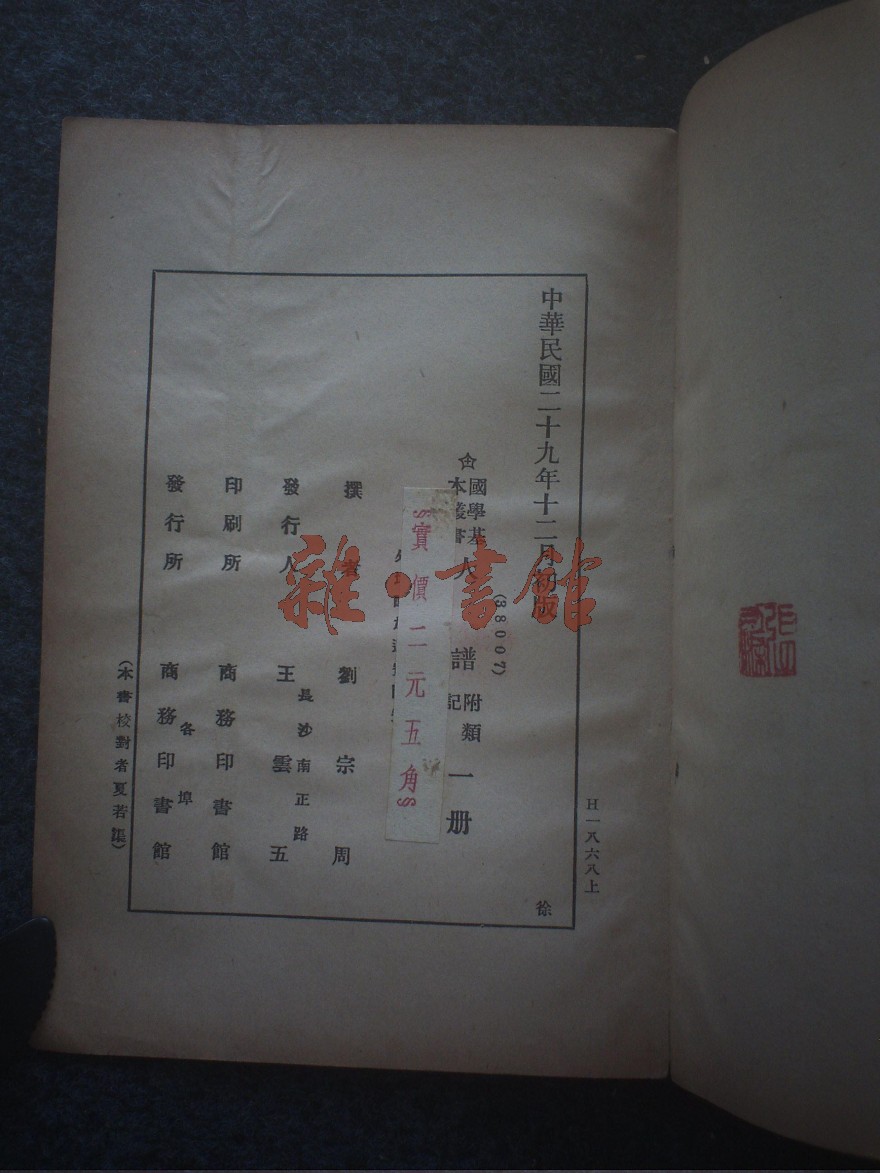 中華民國二十九年十二月初版
(38007)
國學基
本叢書
人譜附類記一册
§實價二元五角§
撰者劉宗周
發行人王雲五
長沙南正路
印刷所商務印書館
發行所商務印書館
各埠
(本書校對者夏若集)
H一八六八上
徐
雜·書館